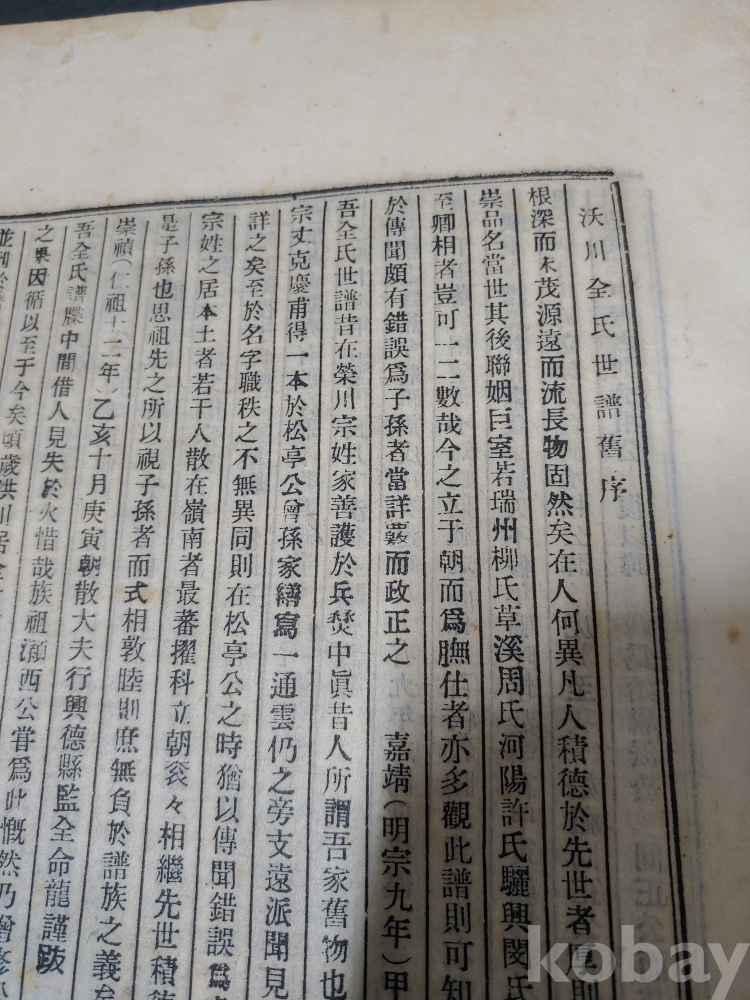 沃川全氏世譜舊序
根深而末茂源遠而流長物固然矣在人何異凡人積德於先世者厚則
崇品名當世其後聯姻巨室若瑞州柳氏草溪周氏河陽許氏驪興閔氏
至卿相者豈可一二數哉今之立于朝而爲膴仕者亦多觀此譜則可知
於傳聞頗有錯誤爲子孫者當詳覈而政正之 嘉靖(明宗九年)甲
吾全氏世譜昔在榮川宗姓家善護於兵燹中眞昔人所謂吾家舊物也
宗丈克慶甫得一本於松亭公曾孫家繕寫一通雲仍之旁支遠派聞見
詳之矣至於名字職秩之不無異同則在松亭公之時猶以傳聞錯誤爲
宗姓之居本土者若干人散在嶺南者最蕃擢科立朝袞々相繼先世積
是子孫也思祖先之所以視子孫者而式相敦陸則庶無負於譜族之義矣
崇禎(仁祖十二年)乙亥十月庚寅朝散大夫行興德縣監全命龍謹跋
吾全氏譜牒中間借人見失於火惜哉族祖灝西公嘗爲此慨然乃曾修
之果因循以至于今矣頃歲洪川居全
並刊於
kobay